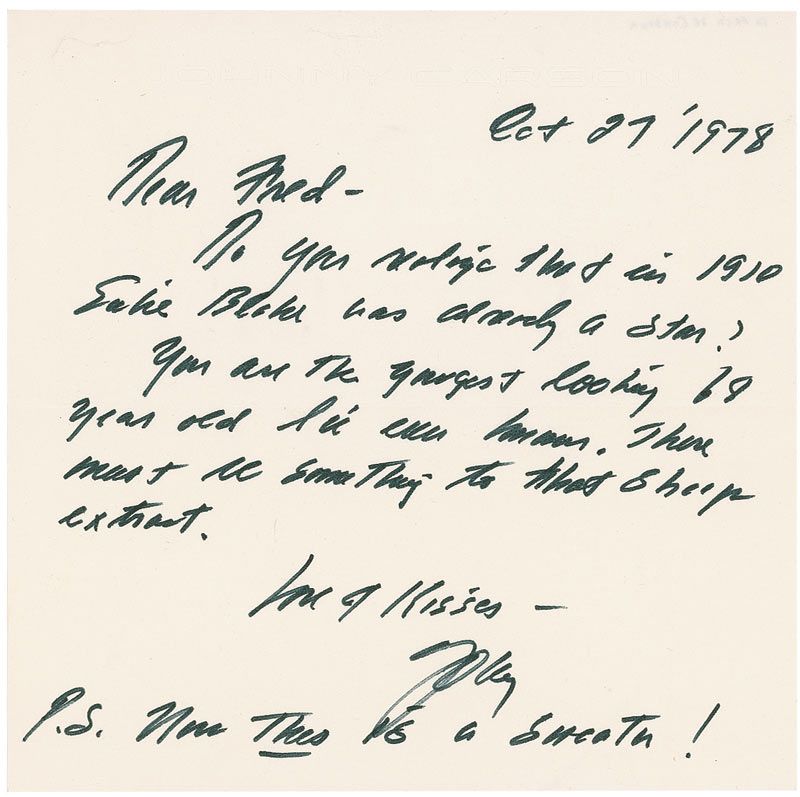 JOHNNY CARSON
Oct 27 '1978
Dear Fred-
Do you realize that in 1910
Eubie Blake was already a star?
You are the youngest looking 68
year old I've ever known. There
must be something to that sheep
extract.
Love & Kisses -
P.S. Now This is a sweater!